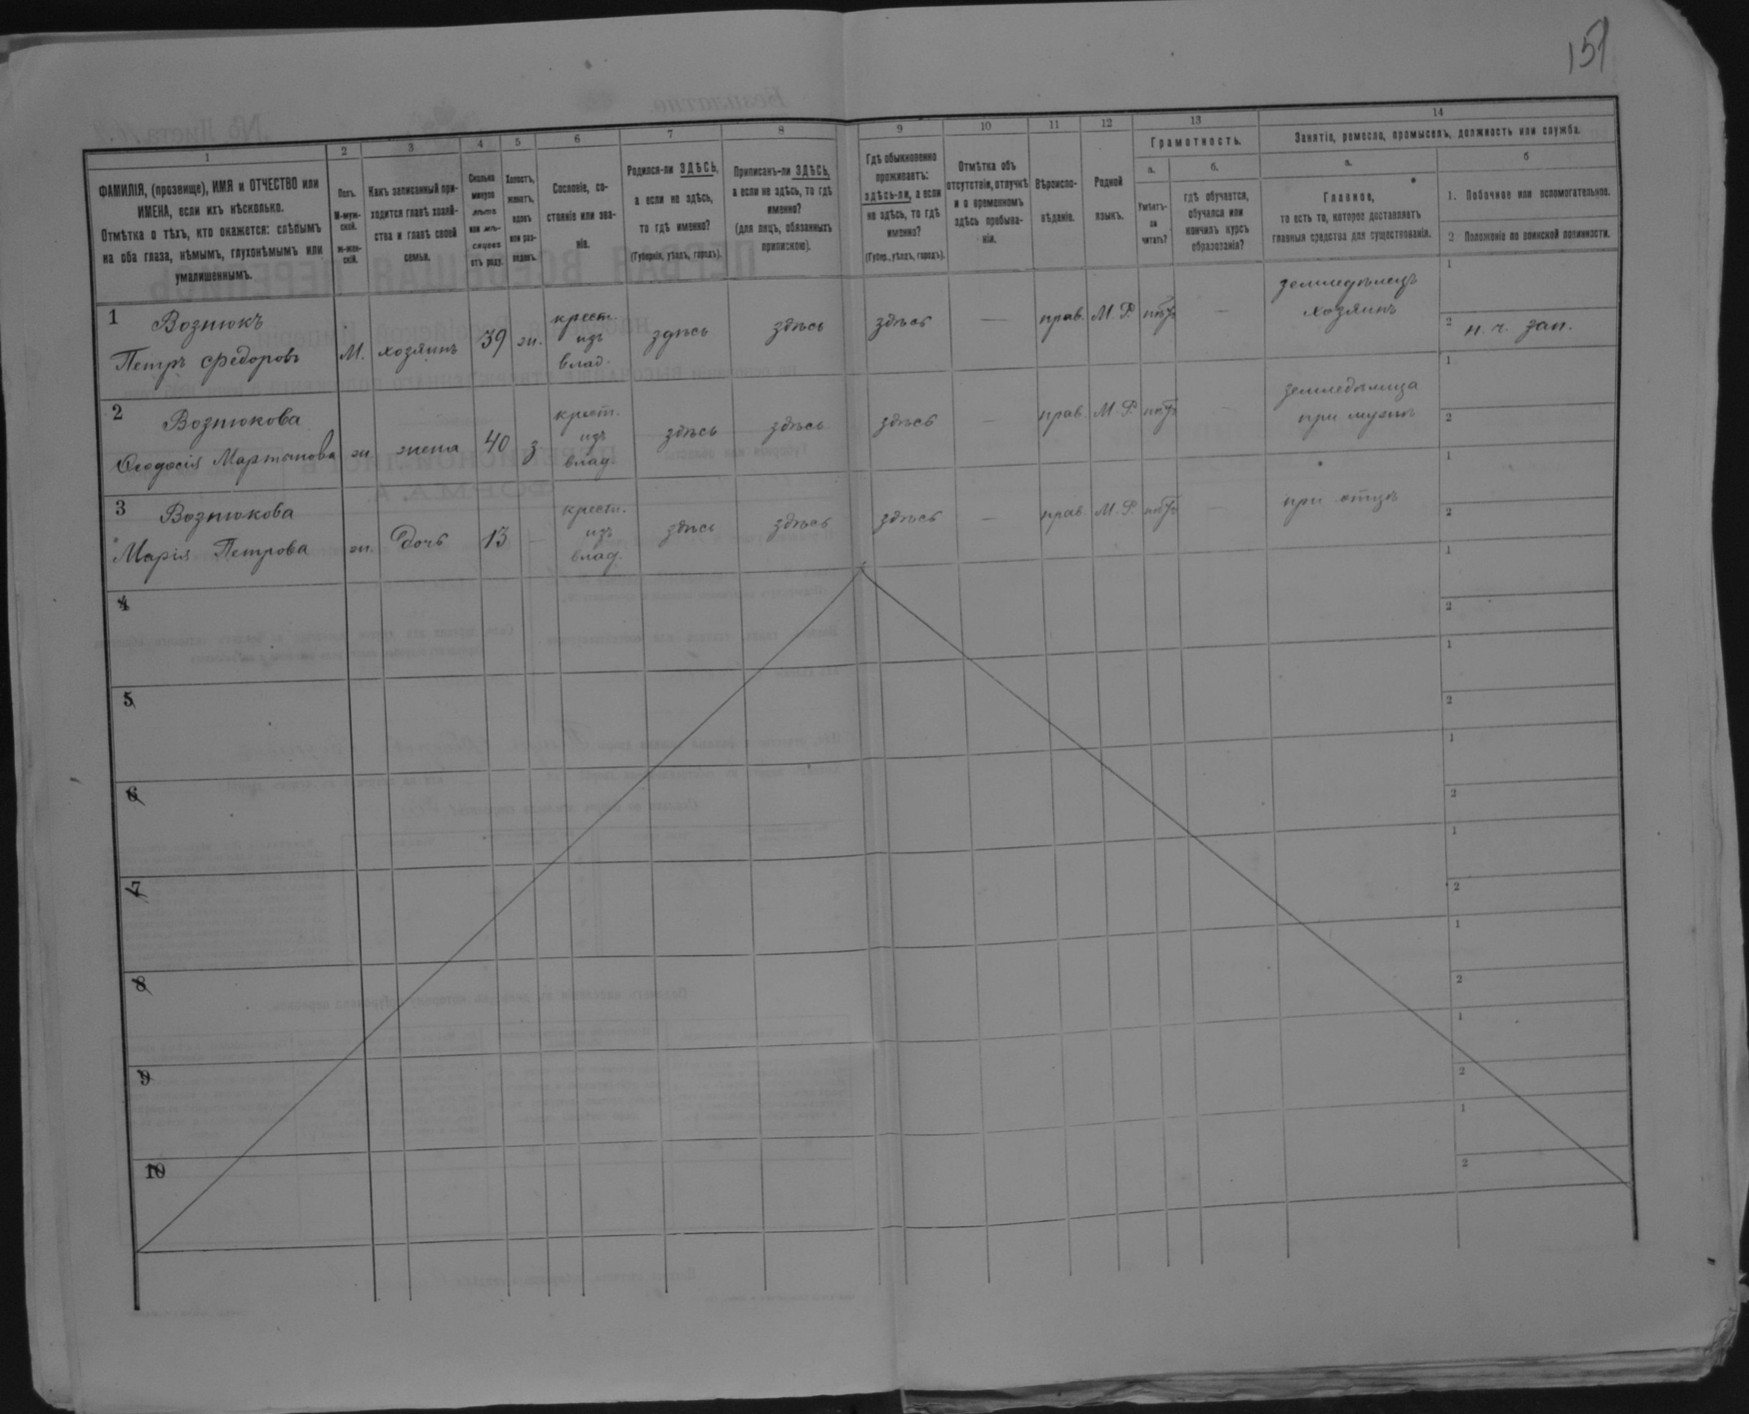 151
1
2
3
4
5
6
7
8
9
10
11
12
13
14
ФАМИЛІЯ, (прозвище), ИМЯ и ОТЧЕСТВО или
ИМЕНА, если ихъ нѣсколько.
Отмѣтка о тѣхъ, кто окажется: слѣпымъ
на оба глаза, нѣмымъ, глухонѣмымъ или
умалишеннымъ.
Полъ.
М-муж-
ской.
ж-жен-
скій.
Какъ записанный при-
ходится главѣ хозяй-
ства и главѣ своей
семьи.
Сколько
минуло
лѣтъ
или мѣ-
сяцевъ
отъ роду.
Холостъ,
женатъ,
вдовъ
или раз-
веденъ.
Сословіе, со-
стояніе или зва-
ніе.
Родился-ли ЗДѢСЬ,
а если не здѣсь,
то гдѣ именно?
(Губернія, уѣздъ, городъ).
Приписанъ-ли ЗДѢСЬ,
а если не здѣсь, то гдѣ
именно?
(для лицъ, обязанныхъ
припискою).
Гдѣ обыкновенно
проживаетъ:
здѣсь-ли, а если
не здѣсь, то гдѣ
именно?
(Губер., уѣздъ, городъ).
Отмѣтка объ
отсутствіи, отлучкѣ
и о временномъ
здѣсь пребыва-
ніи.
Вѣроиспо-
вѣданіе.
Родной
языкъ.
Грамотность.
а.
Умѣетъ-
ли
читать?
б.
гдѣ обучается,
обучался или
кончилъ курсъ
образованія?
Занятіе, ремесло, промыселъ, должность или служба.
а.
Главное,
то есть то, которое доставляетъ
главныя средства для существованія.
б
1. Побочное или вспомогательное.
2 Положеніе по воинской повинности.
1 Вознюкъ
Петръ Федоровъ
М.
хозяинъ
39
ж.
крест.
изъ
влад.
здѣсь
здѣсь
здѣсь
—
прав.
М. Р.
нѣтъ
—
земледѣлецъ
хозяинъ
1
2 н. ч. зап.
2 Вознюкова
Феодосія Мартынова
ж
жена
40
з.
крест.
изъ
влад.
здѣсь
здѣсь
здѣсь
—
прав.
М. Р.
нѣтъ
—
земледѣлица
при мужѣ
1
2
3 Вознюкова
Марія Петрова
ж.
дочь
13
—
крест.
изъ
влад.
здѣсь
здѣсь
здѣсь
—
прав.
М. Р.
нѣтъ
—
при отцѣ
1
2
4
1
2
5
1
2
6
1
2
7
1
2
8
1
2
9
1
2
10
1
2